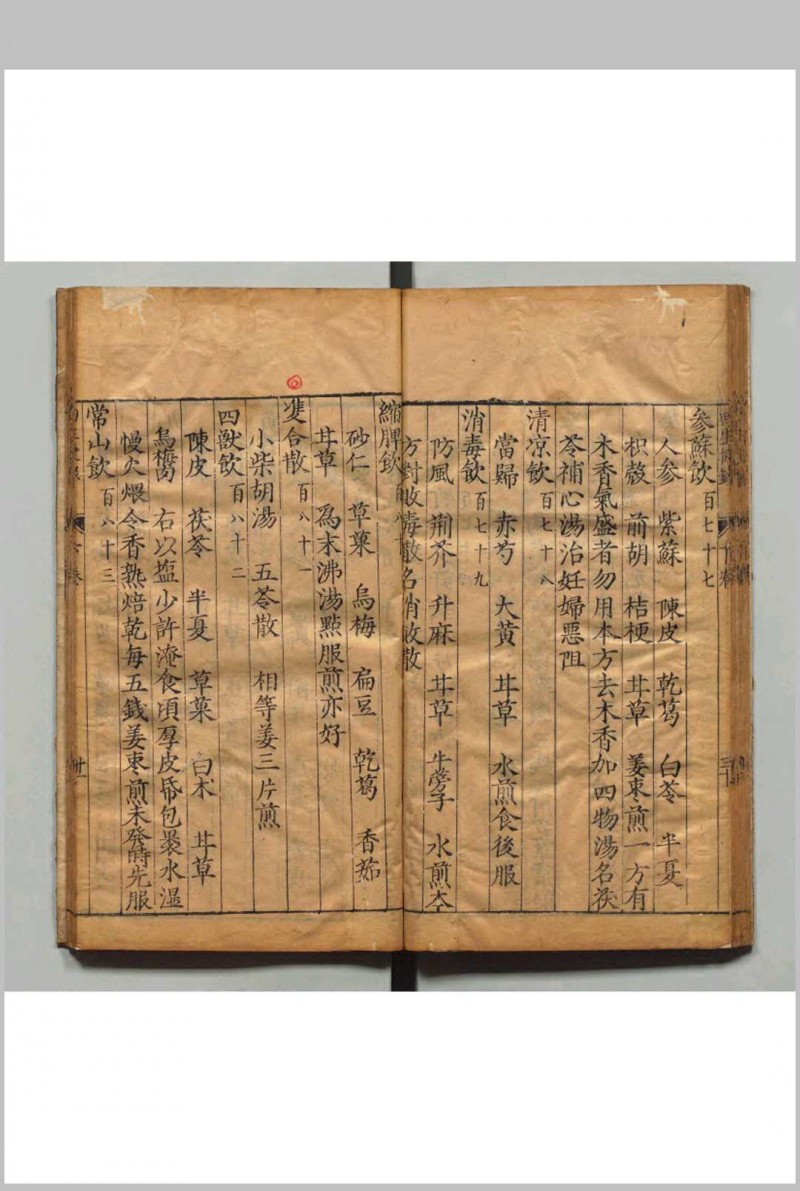 参蘇飲百七十七
人参　紫蘇　陳皮　乾葛　白苓　半夏
枳殼　前胡　桔梗　甘草　姜枣煎一方有
木香氣盛者勿用本方去木香加四物湯名茯
苓補心湯治妊婦惡阻
清凉飲百七十八
當歸　赤芍　大黄　甘草　水煎食後服
消毒飲百七十九
防風　荊芥　升麻　甘草　牛蒡子　水煎本
方對敗毒散名消敗散
縮脾飲百八十
砂仁　草菓　烏梅　扁豆　乾葛　香茹
甘草　為末沸湯㸃服煎亦好
雙合散百八十一
小柴胡湯　五苓散　相等姜三片煎
四獸飲百八十二
陳皮　茯苓　半夏　草菓　白术　甘草
烏梅　右以盐少許淹食頃厚皮帋包裹水湿
慢火煨令香熟焙乾每五錢姜枣煎未發時先服
常山飲百八十三